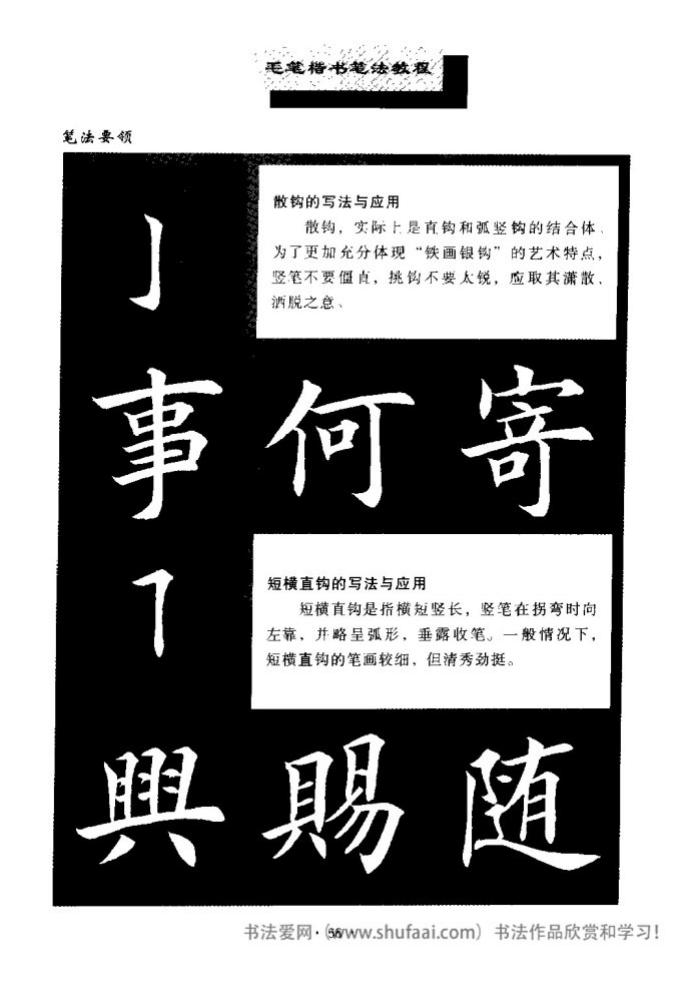 毛笔楷书笔法教程
笔法要领
散钩的写法与应用
散钩，实际上是直钩和弧竖钩的结合体、
为了更加充分体现“铁画银钩”的艺术特点，
竖笔不要僵直，挑钩不要太锐，应取其潇散、
洒脱之意、
亅
事 何 寄
短横直钩的写法与应用
短横直钩是指横短竖长，竖笔在拐弯时向
左靠，并略呈弧形，垂露收笔。一般情况下，
短横直钩的笔画较细，但清秀劲挺。
興 賜 随
书法爱网·（www.shufaai.com）书法作品欣赏和学习!